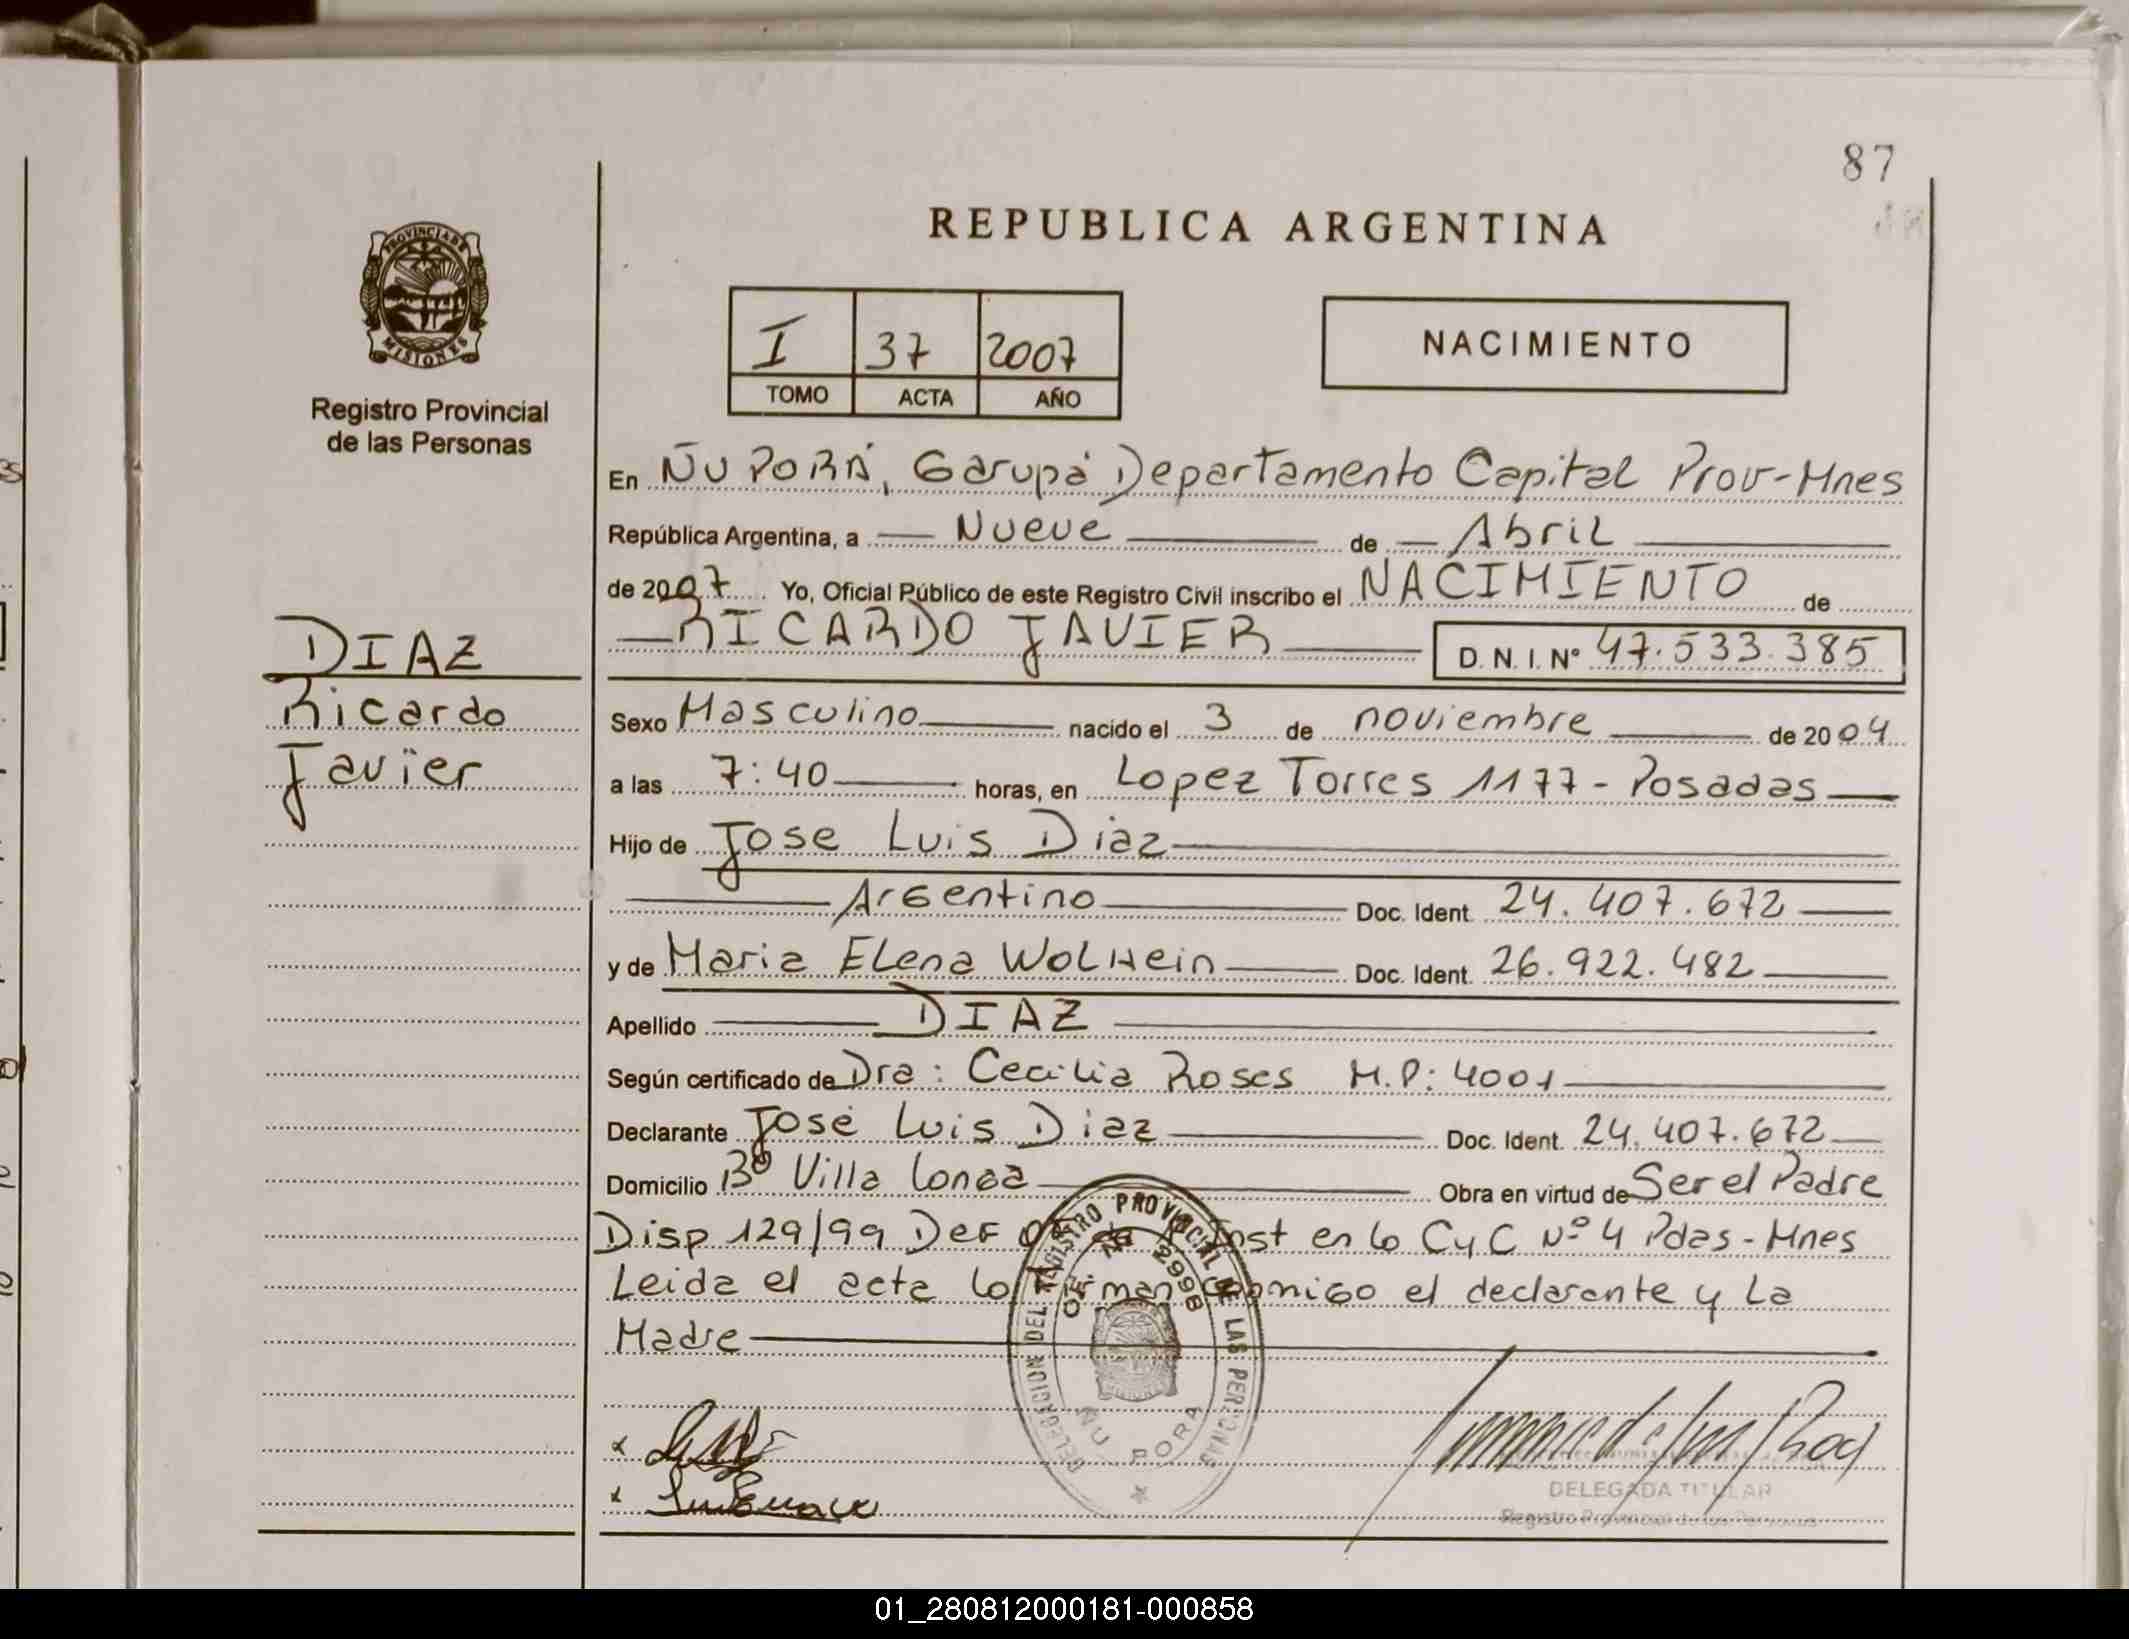 87
REPUBLICA ARGENTINA
PROVINCIA DE
MISIONES
Registro Provincial
de las Personas
I 37 2007
TOMO ACTA AÑO
NACIMIENTO
En ÑU PORÁ, Garupá Departamento Capital Prov-Mnes
República Argentina, a Nueve de Abril
de 2007 Yo, Oficial Público de este Registro Civil inscribo el NACIMIENTO de
RICARDO JAVIER D. N. I. Nº 47.533.385
DIAZ
Ricardo
Javier
Sexo Masculino nacido el 3 de noviembre de 2004
a las 7:40 horas, en Lopez Torres 1177 - Posadas
Hijo de Jose Luis Diaz
Argentino Doc. Ident. 24.407.672
y de Maria Elena Wolhein Doc. Ident. 26.922.482
Apellido DIAZ
Según certificado de Dra: Cecilia Roses M.P: 4001
Declarante José Luis Diaz Doc. Ident. 24.407.672
Domicilio Bº Villa Longa Obra en virtud de Ser el Padre
Disp 129/99 Def Inst en lo CyC Nº 4 Pdas - Mnes
Leida el acta lo firman conmigo el declarante y La
Madre
DELEGACION DEL REGISTRO PROVINCIAL DE LAS PERSONAS
ÑU PORA
DELEGADA TITULAR
Registro Provincial de las Personas
01_280812000181-000858